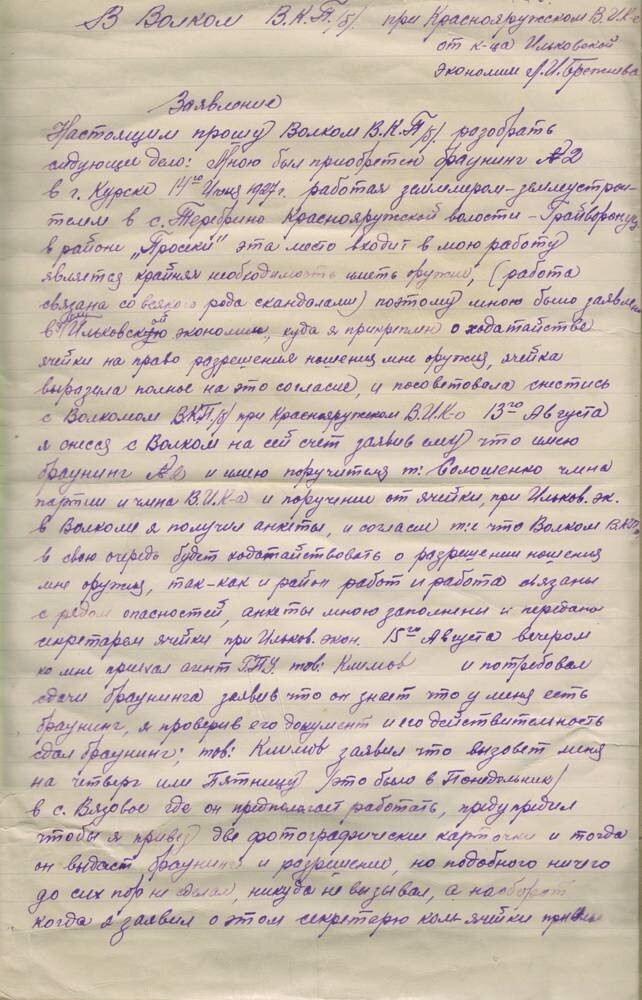 В Волком В.К.П./б/. при Краснояружском В.И.К-е
от к-ца Ильковской
экономии Л.И. Брежнева
Заявление
Настоящим прошу Волком В.К.П/б/ разобрать
следующие дело: Мною был приобретен браунинг №2
в г. Курске 14го 1927г. работая землемером-землеустрои-
телем в с. Теребрино Краснояружской волости – Грайворон. уез.
в районе „Просеки" эта место входит в мою работу
является крайняя необходимость иметь оружие, (работа
связана со всякого рода скандалами) поэтому мною было заявлено
в Ильковской экономии, куда я прикреплен о ходатайстве
ячейки на право разрешения ношения мне оружия, ячейка
выразила полное на это согласие, и посоветовала снестись
с Волкомом ВКП/б/ при Краснояружском В.И.К-о 13го Августа
я снесся с Волком на сей счет заявив ему что имею
браунинг №2 и имею поручителя т: Солошенко члена
партии и члена В.И.К-а и поручении от ячейки, при Ильков. эк.
в Волкоме я получил анкеты, и согласие т:е что Волком В.К.П.
в свою очередь будет ходатайствовать о разрешении ношения
мне оружия, так-как и район работ и работа связаны
с рядом опасностей, анкеты мною заполнени и переданы
секретарем ячейки при Ильков. экон. 15го Августа вечером
ко мне приехал агент Г.П.У. тов: Климов и потребовал
сдачи браунинга заявив что он знает что у меня есть
браунинг, я проверив его документ и его действительность
сдал браунинг; тов: Климов заявил что вызовет меня
на четверг или Пятницу /это было в Понедельник/
в с. Вязовое где он предполагает работать, предупредил
чтобы я привез две фотографические карточки и тогда
он выдаст браунинг и разрешение, но подобного ничего
до сих пор не сделал, никуда не вызывал, а наоборот
когда я заявил о этом секретерю ком ячейки при